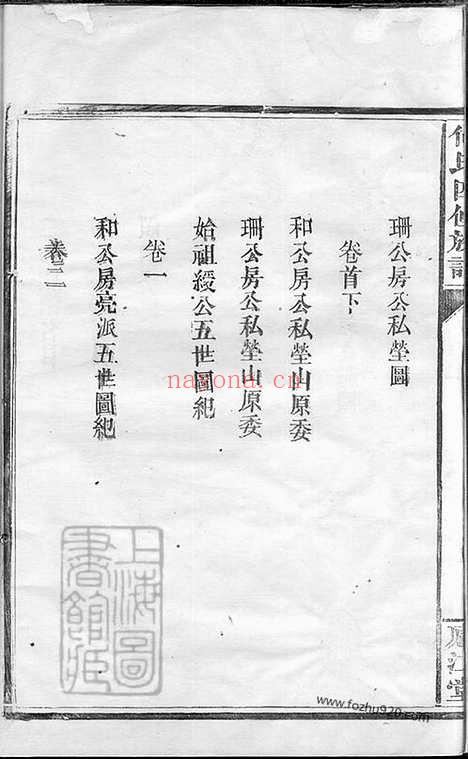 珊公房公私塋圖
卷首下
和公房公私塋山原委
珊公房公私塋山原委
始祖綬公五世圖紀
卷一
和公房亮派五世圖紀
卷二
上海圖
書館臧
naxona.cn
www.fozhu920.com